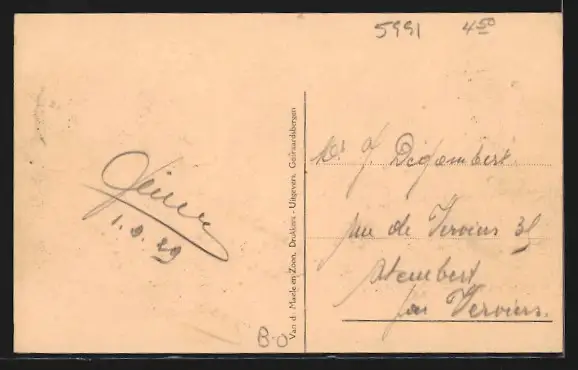 5991 4.50
1.9.29
Van d. Maele en Zoon, Drukkers - Uitgevers, Geeraardsbergen
Mr J. Degombert
rue de Verviers 35
Stembert
par Verviers.
B-O